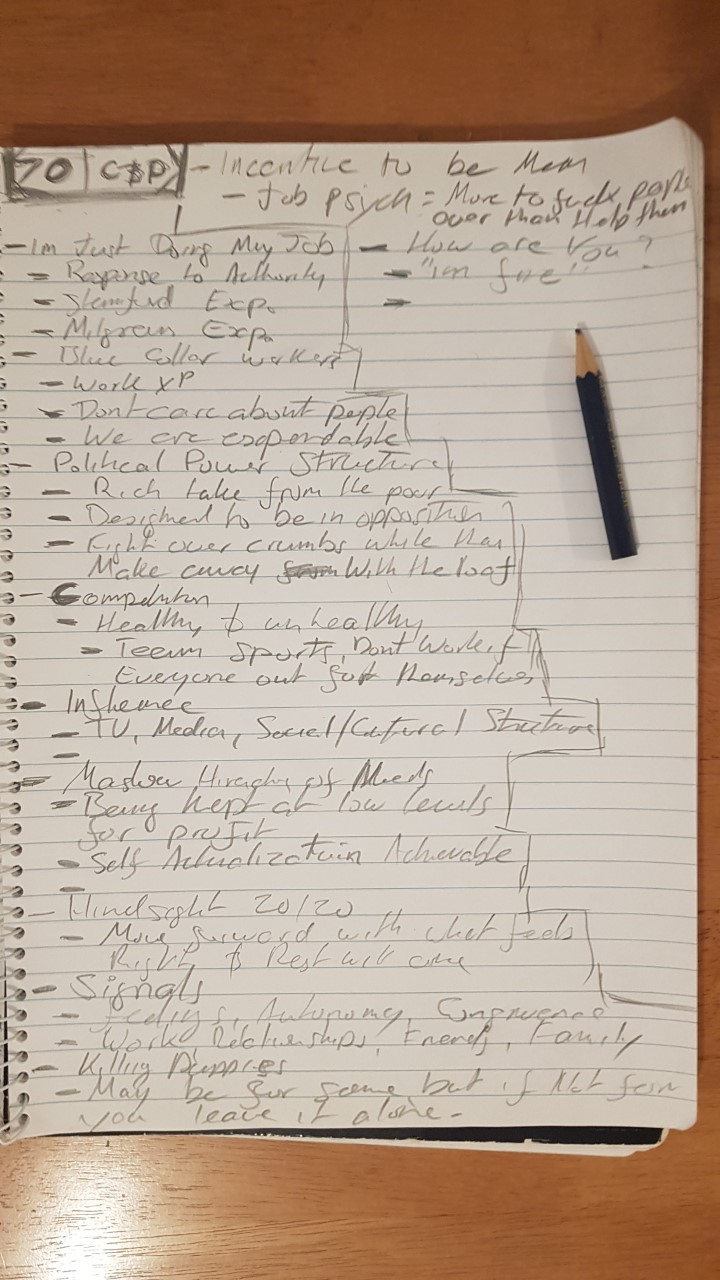 70 C&P - Incentive to be Mean
- Job psych = More to fuck people
over than Help them
- Im Just Doing My Job
- Response to Authority
- Stamford Exp.
- Milgram Exp.
- How are You?
- "im fine"
-
- Blue Collar workers
- Work XP
- Dont care about people
- We are expendable
- Political Power Structure
- Rich take from the poor
- Designed to be in opposition
- Fight over crumbs while they
Make away With the loaf
- Competition
- Healthy & unhealthy
- Team Sports, Dont Work if
Everyone out for themselves
- Influence
- TV, Media, Social/Cultural Structure
-
- Maslow Hiraghy of Needs
- Being kept at low levels
for profit
- Self Actualization Achievable
-
- Hindsight 20/20
- Move forward with what feels
Right, & Rest will come
- Signals
- Feelings, Autonomy, Congruence
- Work, Relationships, Friends, Family
- Killing Puppies
- May be for some but if Not for
you leave it alone.